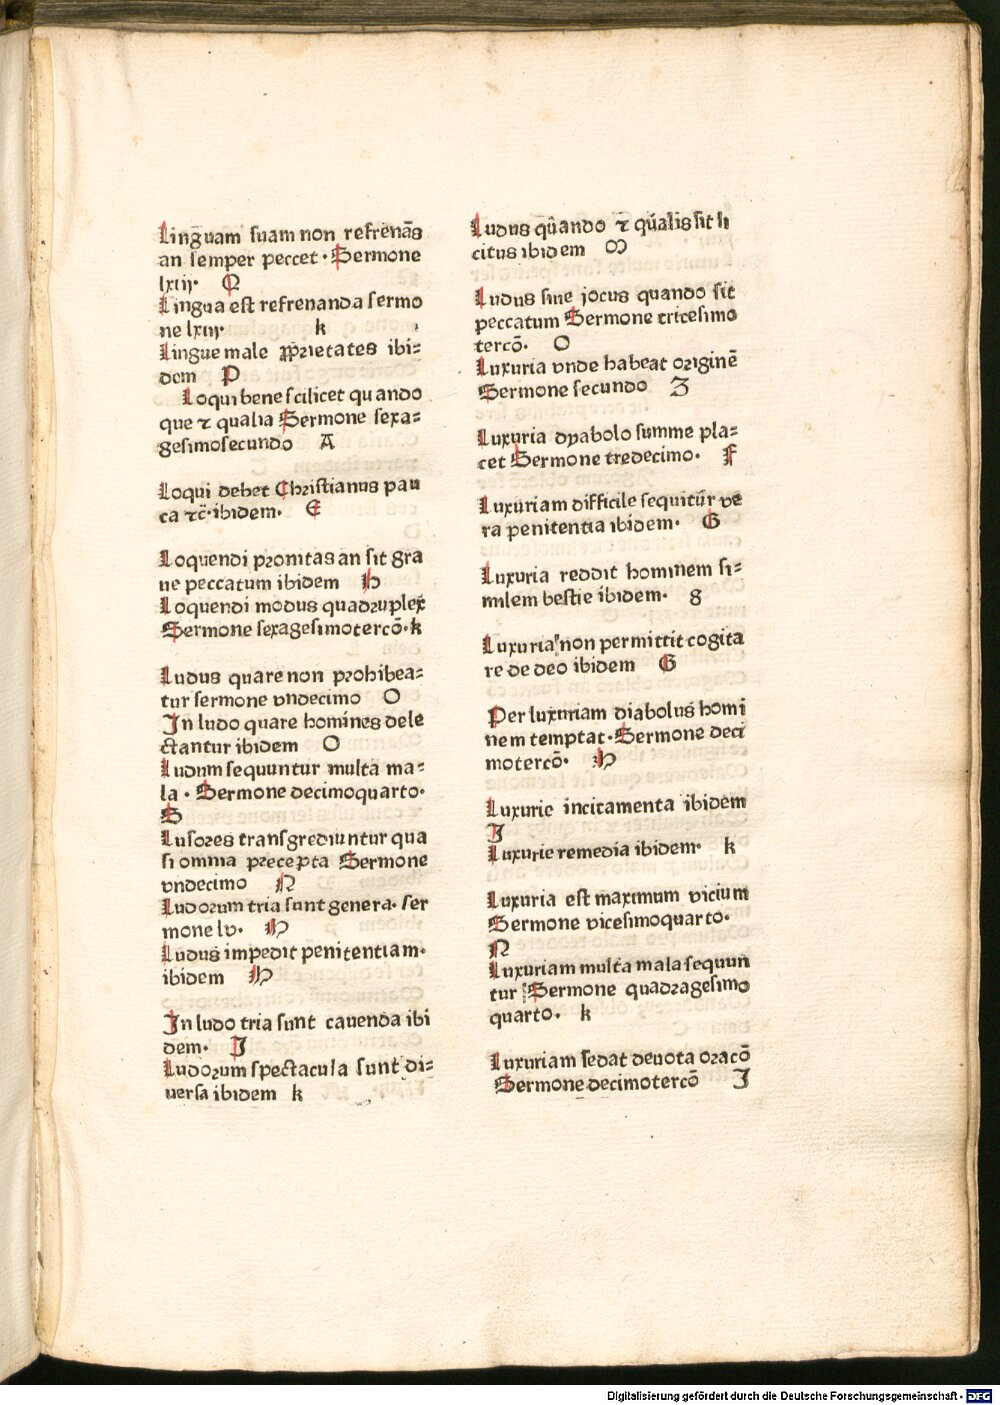 Linguam suam non refrenãs
an semper peccet · Sermone
lxiij· Q
Lingua est refrenanda sermo
ne lxiij· k
Lingue male ꝓprietates ibi⸗
dem P
Loqui bene scilicet quando
que ⁊ qualia Sermone sexa⸗
gesimosecundo A
Loqui debet Christianus pau
ca ⁊c̃·ibidem· E
Loquendi pronitas an sit gra
ue peccatum ibidem H
Loquendi modus quadruplex
Sermone sexagesimotercõ·k
Ludus quare non prohibea⸗
tur sermone vndecimo O
In ludo quare homines dele
ctantur ibidem O
Ludum sequuntur multa ma⸗
la · Sermone decimoquarto·
S
Lusores transgrediuntur qua
si omnia precepta Sermone
vndecimo N
Ludorum tria sunt genera· ser
mone lv· H
Ludus impedit penitentiam·
ibidem H
In ludo tria sunt cauenda ibi
dem· J
Ludorum spectacula sunt di⸗
uersa ibidem k
Ludus quãndo ⁊ quãlis sit li
citus ibidem M
Ludus siue jocus quando sit
peccatum Sermone tricesimo
tercõ· O
Luxuria vnde habeat originẽ
Sermone secundo Z
Luxuria dyabolo summe pla⸗
cet Sermone tredecimo· F
Luxuriam difficile sequitur ve
ra penitentia ibidem· G
Luxuria reddit hominem si⸗
milem bestie ibidem· g
Luxuria non permittit cogita
re de deo ibidem G
Per luxuriam diabolus homi
nem temptat·Sermone deci
motercõ· H
Luxurie incitamenta ibidem
J
Luxurie remedia ibidem· k
Luxuria est maximum vicium
Sermone vicesimoquarto·
N
Luxuriam multa mala sequun
tur Sermone quadragesimo
quarto· k
Luxuriam sedat deuota oracõ
Sermone decimotercõ J
Digitalisierung gefördert durch die Deutsche Forschungsgemeinschaft - DFG